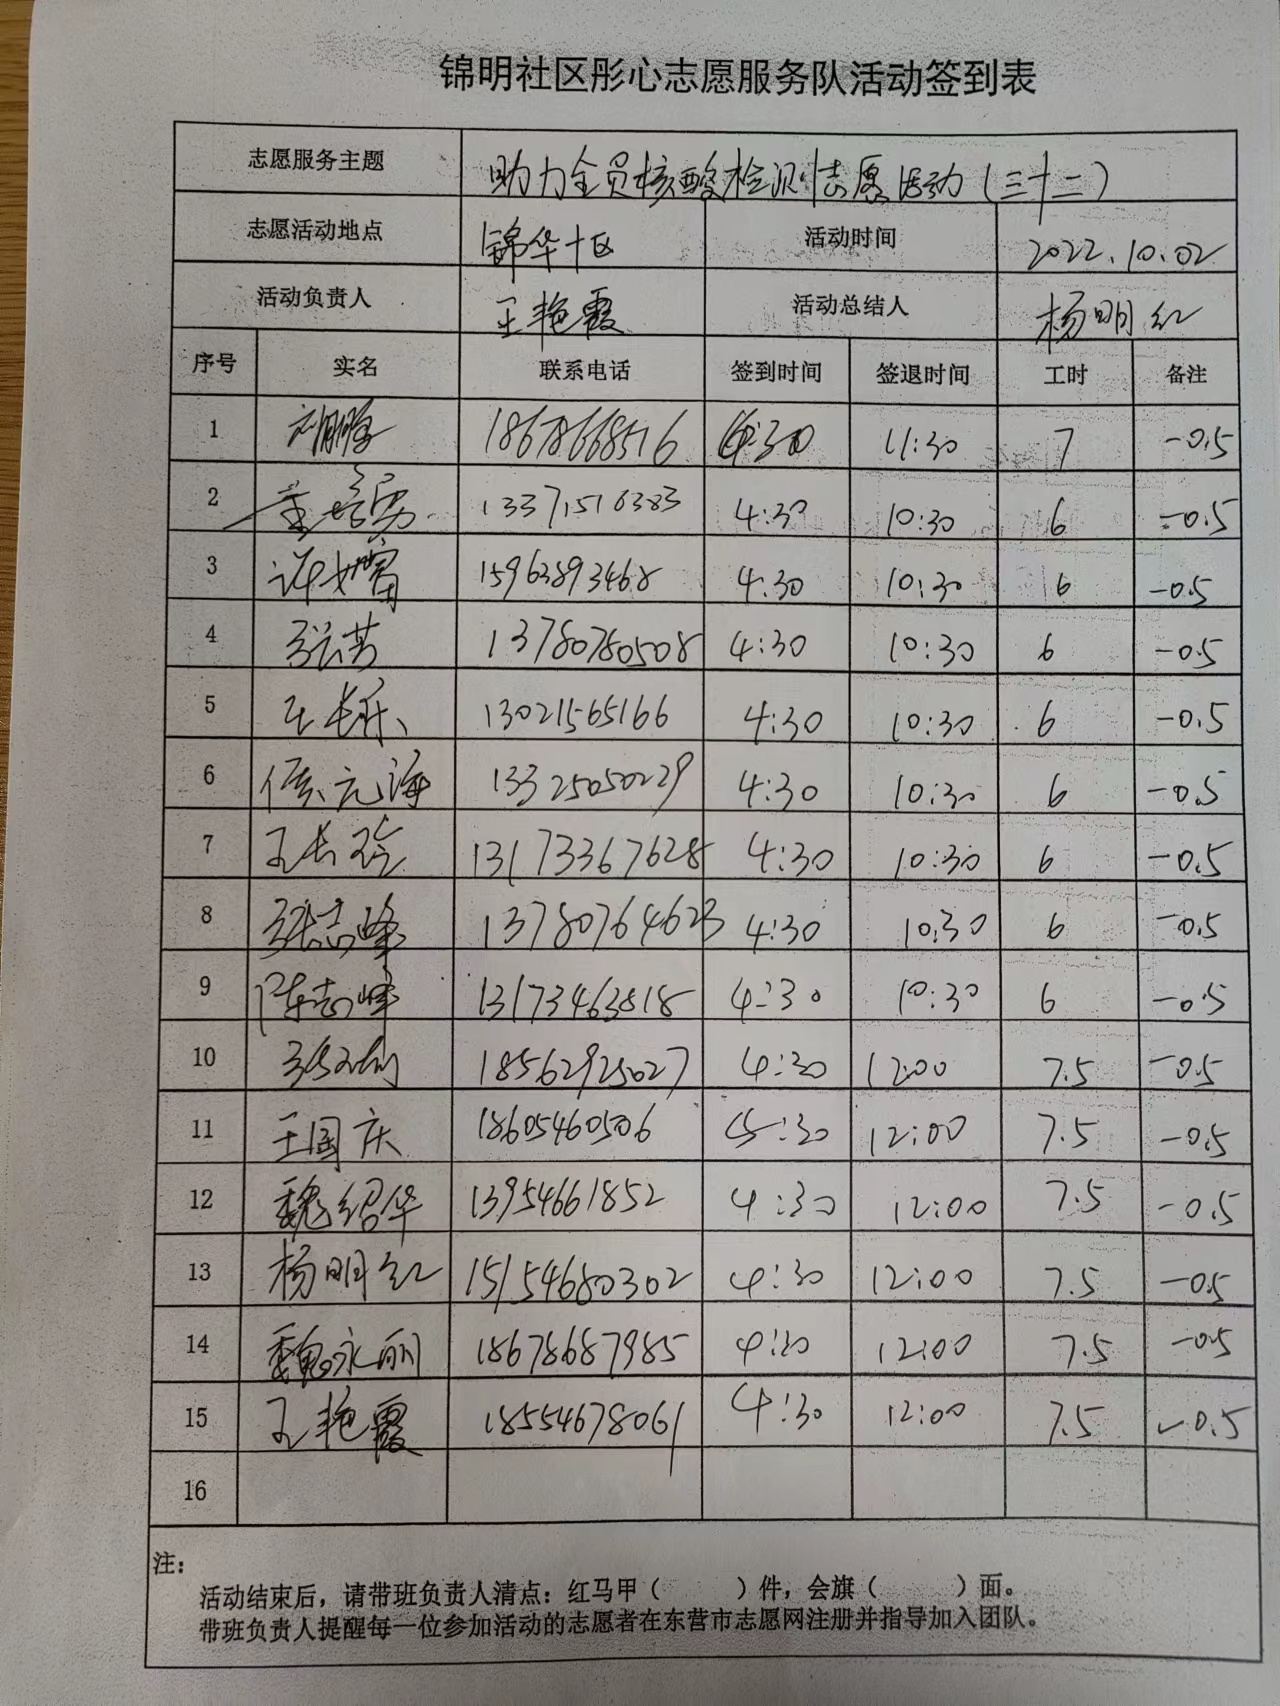 锦明社区彤心志愿服务队活动签到表
志愿服务主题 助力全员核酸检测志愿活动(三十二)
志愿活动地点 锦华十区 活动时间 2022.10.02
活动负责人 王艳霞 活动总结人 杨明红
序号 实名 联系电话 签到时间 签退时间 工时 备注
1 18678668516 4:30 11:30 7 -0.5
2 13371516383 4:30 10:30 6 -0.5
3 15963893468 4:30 10:30 6 -0.5
4 张芸 13780780508 4:30 10:30 6 -0.5
5 王长乐 13021565166 4:30 10:30 6 -0.5
6 侯元海 13325050229 4:30 10:30 6 -0.5
7 王长玲 13173367628 4:30 10:30 6 -0.5
8 张志峰 13780764623 4:30 10:30 6 -0.5
9 陈志峰 13173463818 4:30 10:30 6 -0.5
10 18562925027 4:30 12:00 7.5 -0.5
11 王国庆 18605460506 4:30 12:00 7.5 -0.5
12 魏绍华 13954661852 4:30 12:00 7.5 -0.5
13 杨明红 15154680302 4:30 12:00 7.5 -0.5
14 魏永丽 18678687985 4:30 12:00 7.5 -0.5
15 王艳霞 18554678061 4:30 12:00 7.5 -0.5
16
注:
活动结束后,请带班负责人清点:红马甲( )件,会旗( )面。
带班负责人提醒每一位参加活动的志愿者在东营市志愿网注册并指导加入团队。